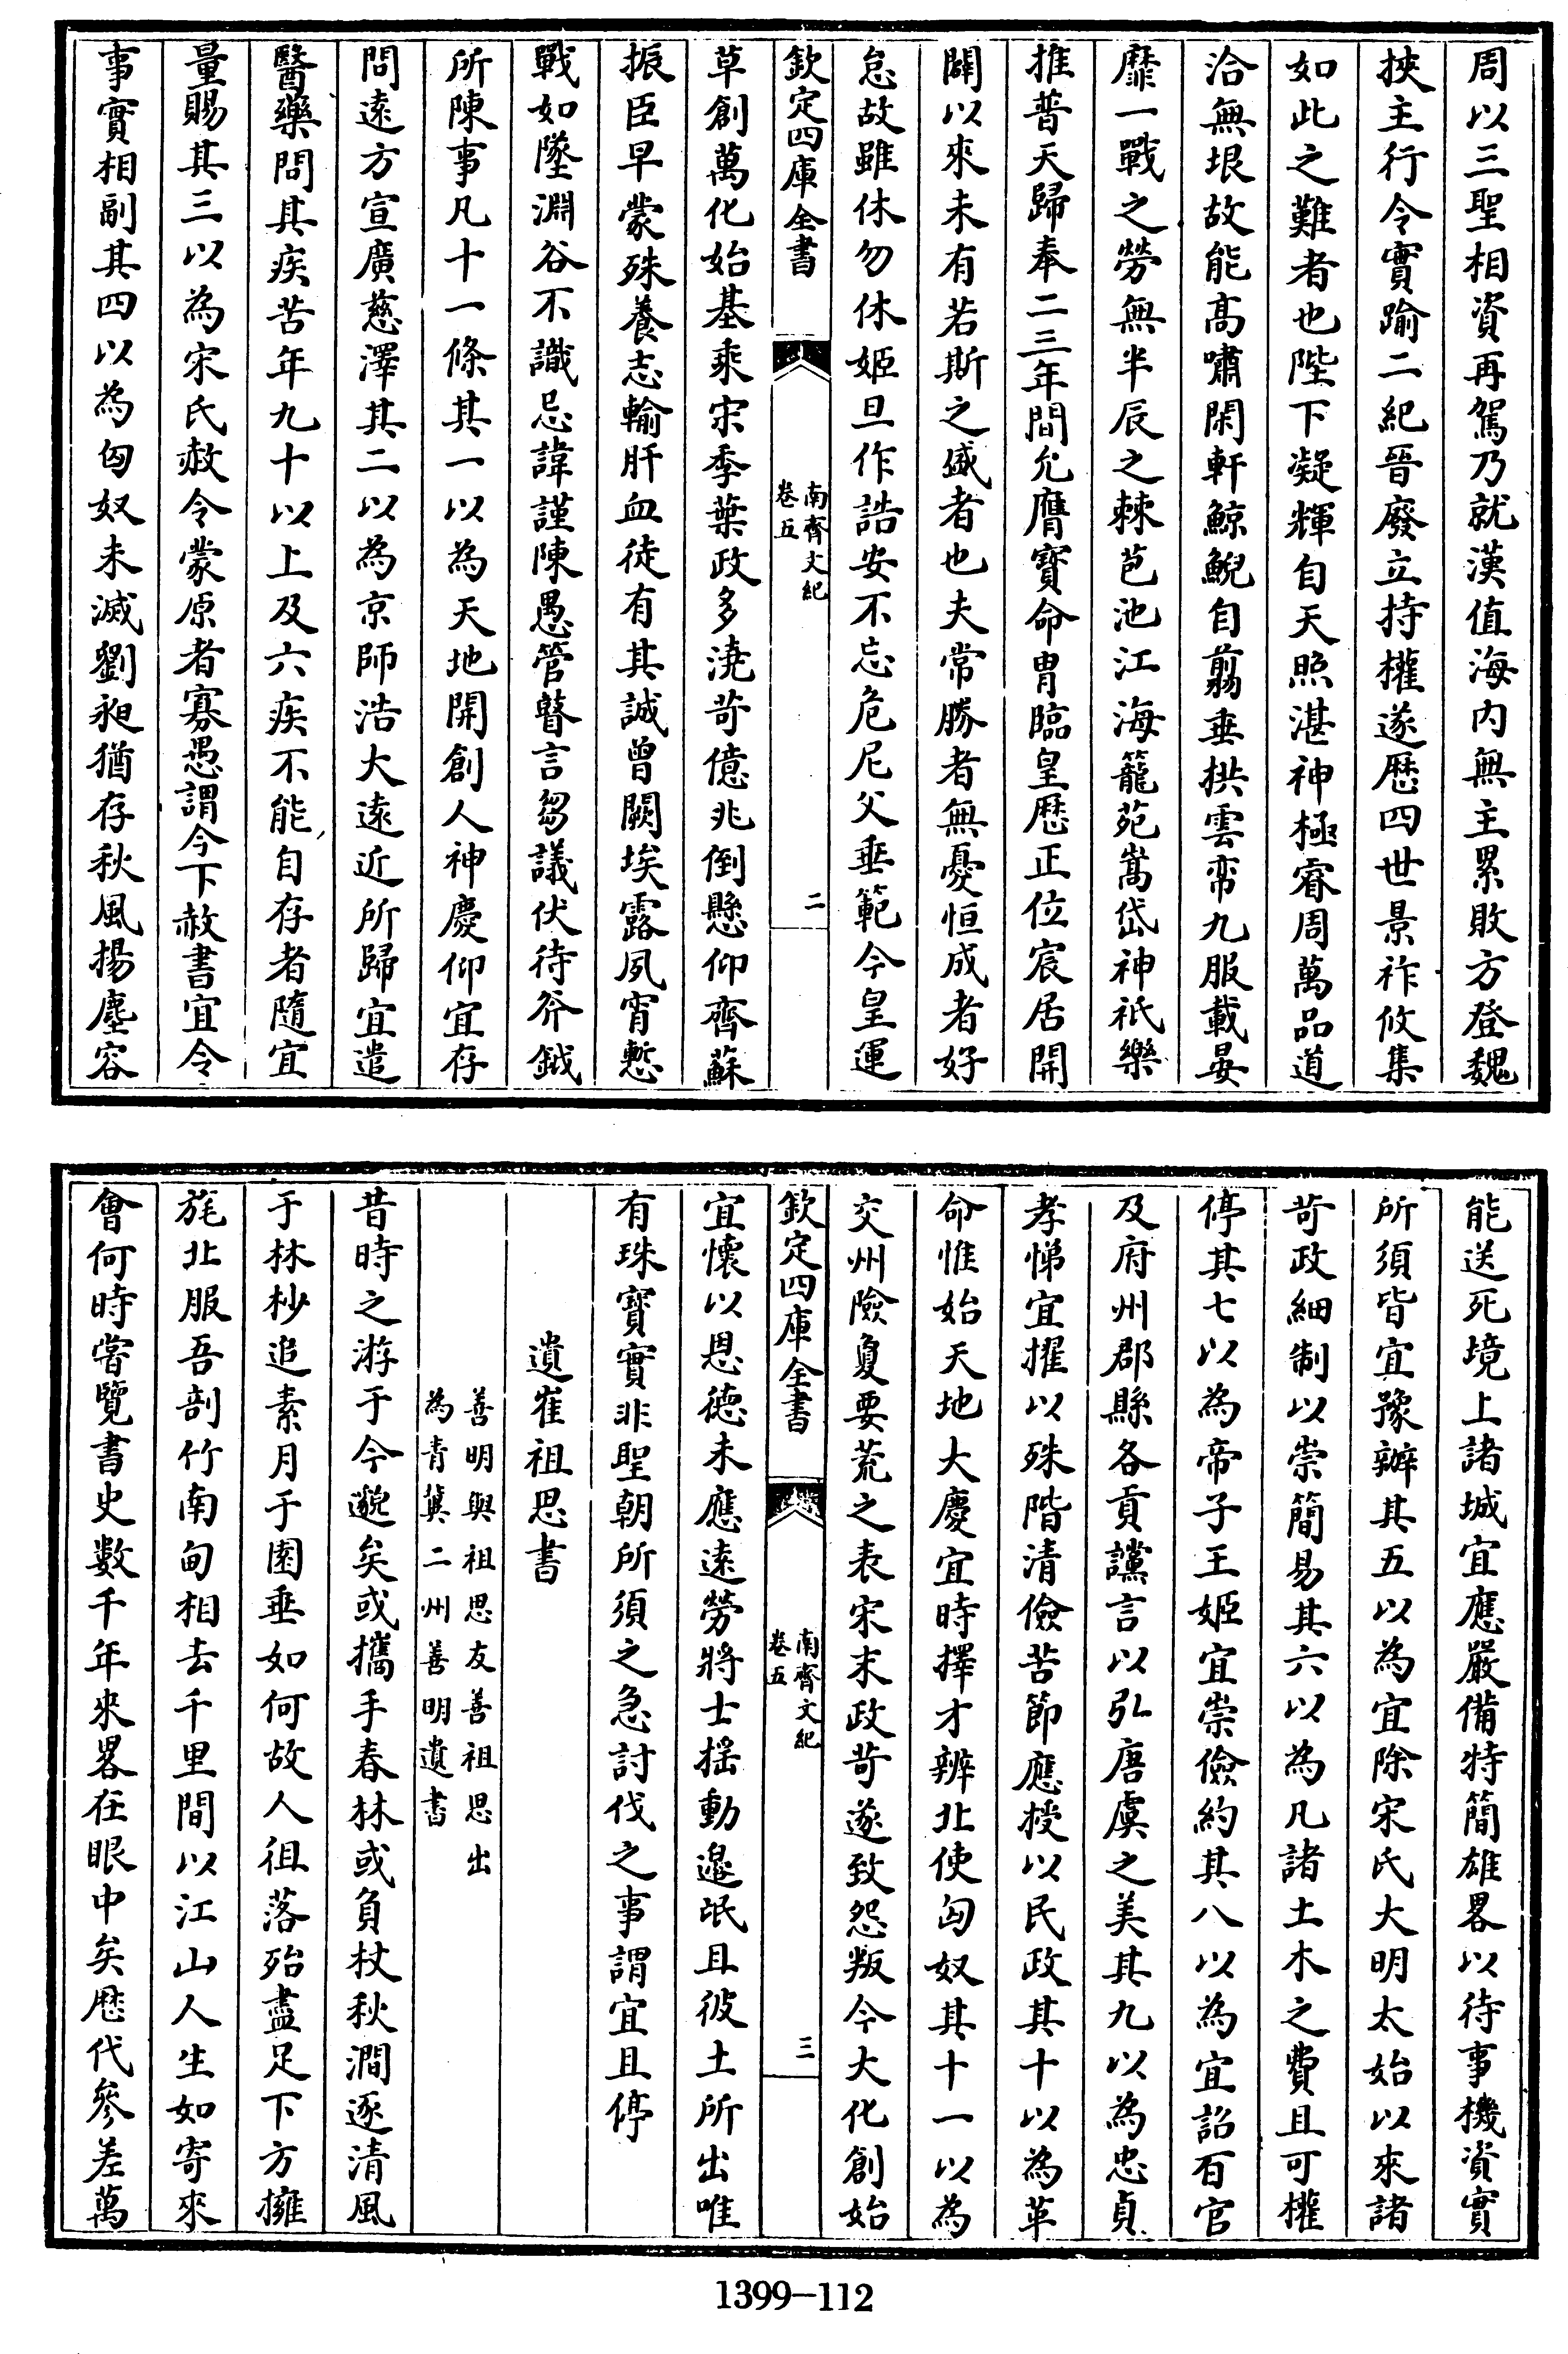 周以三聖相資再駕乃就漢值海内無主累敗方登魏
挾主行令實踰二紀晉廢立持權遂歴四世景祚攸集
如此之難者也陛下凝輝自天照湛神極睿周萬品道
洽無垠故能高嘯閑軒鯨鯢自翦垂拱雲帟九服載晏
靡一戰之勞無半辰之棘苞池江海籠苑嵩岱神祇樂
推普天歸奉二三年間允膺寳命胄臨皇歴正位宸居開
闢以來未有若斯之盛者也夫常勝者無憂恒成者好
怠故雖休勿休姬旦作誥安不忘危尼父垂範今皇運
欽定四庫全書
南齊文紀
卷五
二
草創萬化始基乘宋季葉政多澆苛億兆倒懸仰齊蘇
振臣早蒙殊養志輸肝血徒有其誠曾闕埃露夙宵慙
戰如墜淵谷不識忌諱謹陳愚管瞽言芻議伏待斧鉞
所陳事凡十一條其一以為天地開創人神慶仰宜存
問遠方宣廣慈澤其二以為京師浩大遠近所歸宜遣
醫藥問其疾苦年九十以上及六疾不能自存者隨宜
量賜其三以為宋氏赦令蒙原者寡愚謂今下赦書宜令
事實相副其四以為匈奴未滅劉昶猶存秋風揚塵容
能送死境上諸城宜應嚴備特簡雄畧以待事機資實
所須皆宜豫辦其五以為宜除宋氏大明太始以來諸
苛政細制以崇簡易其六以為凡諸土木之費且可權
停其七以為帝子王姬宜崇儉約其八以為宜詔百官
及府州郡縣各貢讜言以弘唐虞之美其九以為忠貞
孝悌宜擢以殊階清儉苦節應授以民政其十以為革
命惟始天地大慶宜時擇才辨北使匈奴其十一以為
交州險夐要荒之表宋末政苛遂致怨叛今大化創始
欽定四庫全書
南齊文紀
卷五
三
宜懷以恩德未應遠勞將士揺動邉氓且彼土所出唯
有珠寳實非聖朝所須之急討伐之事謂宜且停
遺崔祖思書
善明與祖思友善祖思出
為青冀二州善明遺書
昔時之游于今邈矣或攜手春林或負杖秋澗逐清風
于林杪追素月于園垂如何故人徂落殆盡足下方擁
旄北服吾剖竹南甸相去千里間以江山人生如寄來
會何時嘗覽書史數千年來畧在眼中矣歴代參差萬
1399-112